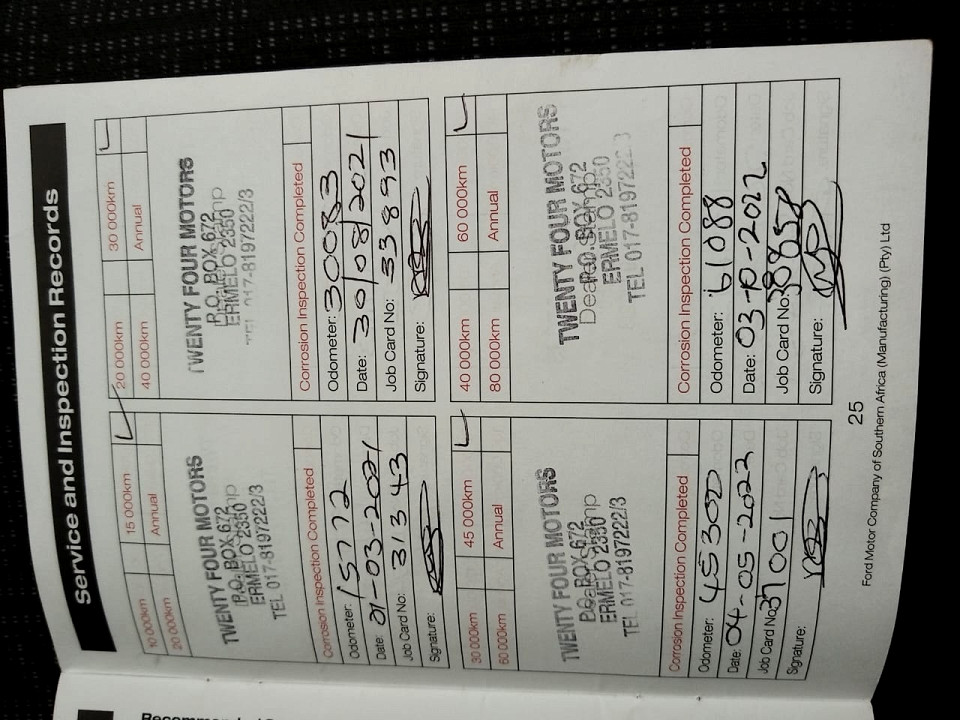 Service and Inspection Records
10 000km 15 000km ✓
20 000km Annual
TWENTY FOUR MOTORS
P.O. BOX 672
ERMELO 2350
TEL 017-8197222/3
Corrosion Inspection Completed
Odometer: 15772
Date: 01-03-2021
Job Card No: 31343
Signature:
20 000km 30 000km ✓
40 000km Annual
TWENTY FOUR MOTORS
P.O. BOX 672
ERMELO 2350
TEL 017-8197222/3
Corrosion Inspection Completed
Odometer: 30083
Date: 30/08/2021
Job Card No: 33893
Signature:
30 000km 45 000km ✓
60 000km Annual
TWENTY FOUR MOTORS
P.O. BOX 672
Dealer Stamp
ERMELO 2350
TEL 017-8197222/3
Corrosion Inspection Completed
Odometer: 45300
Date: 04-05-2022
Job Card No: 37001
Signature:
40 000km 60 000km ✓
80 000km Annual
TWENTY FOUR MOTORS
P.O. BOX 672
Dealer Stamp
ERMELO 2350
TEL 017-8197222/3
Corrosion Inspection Completed
Odometer: 61088
Date: 03-10-2022
Job Card No:
Signature:
25
Ford Motor Company of Southern Africa (Manufacturing) (Pty) Ltd